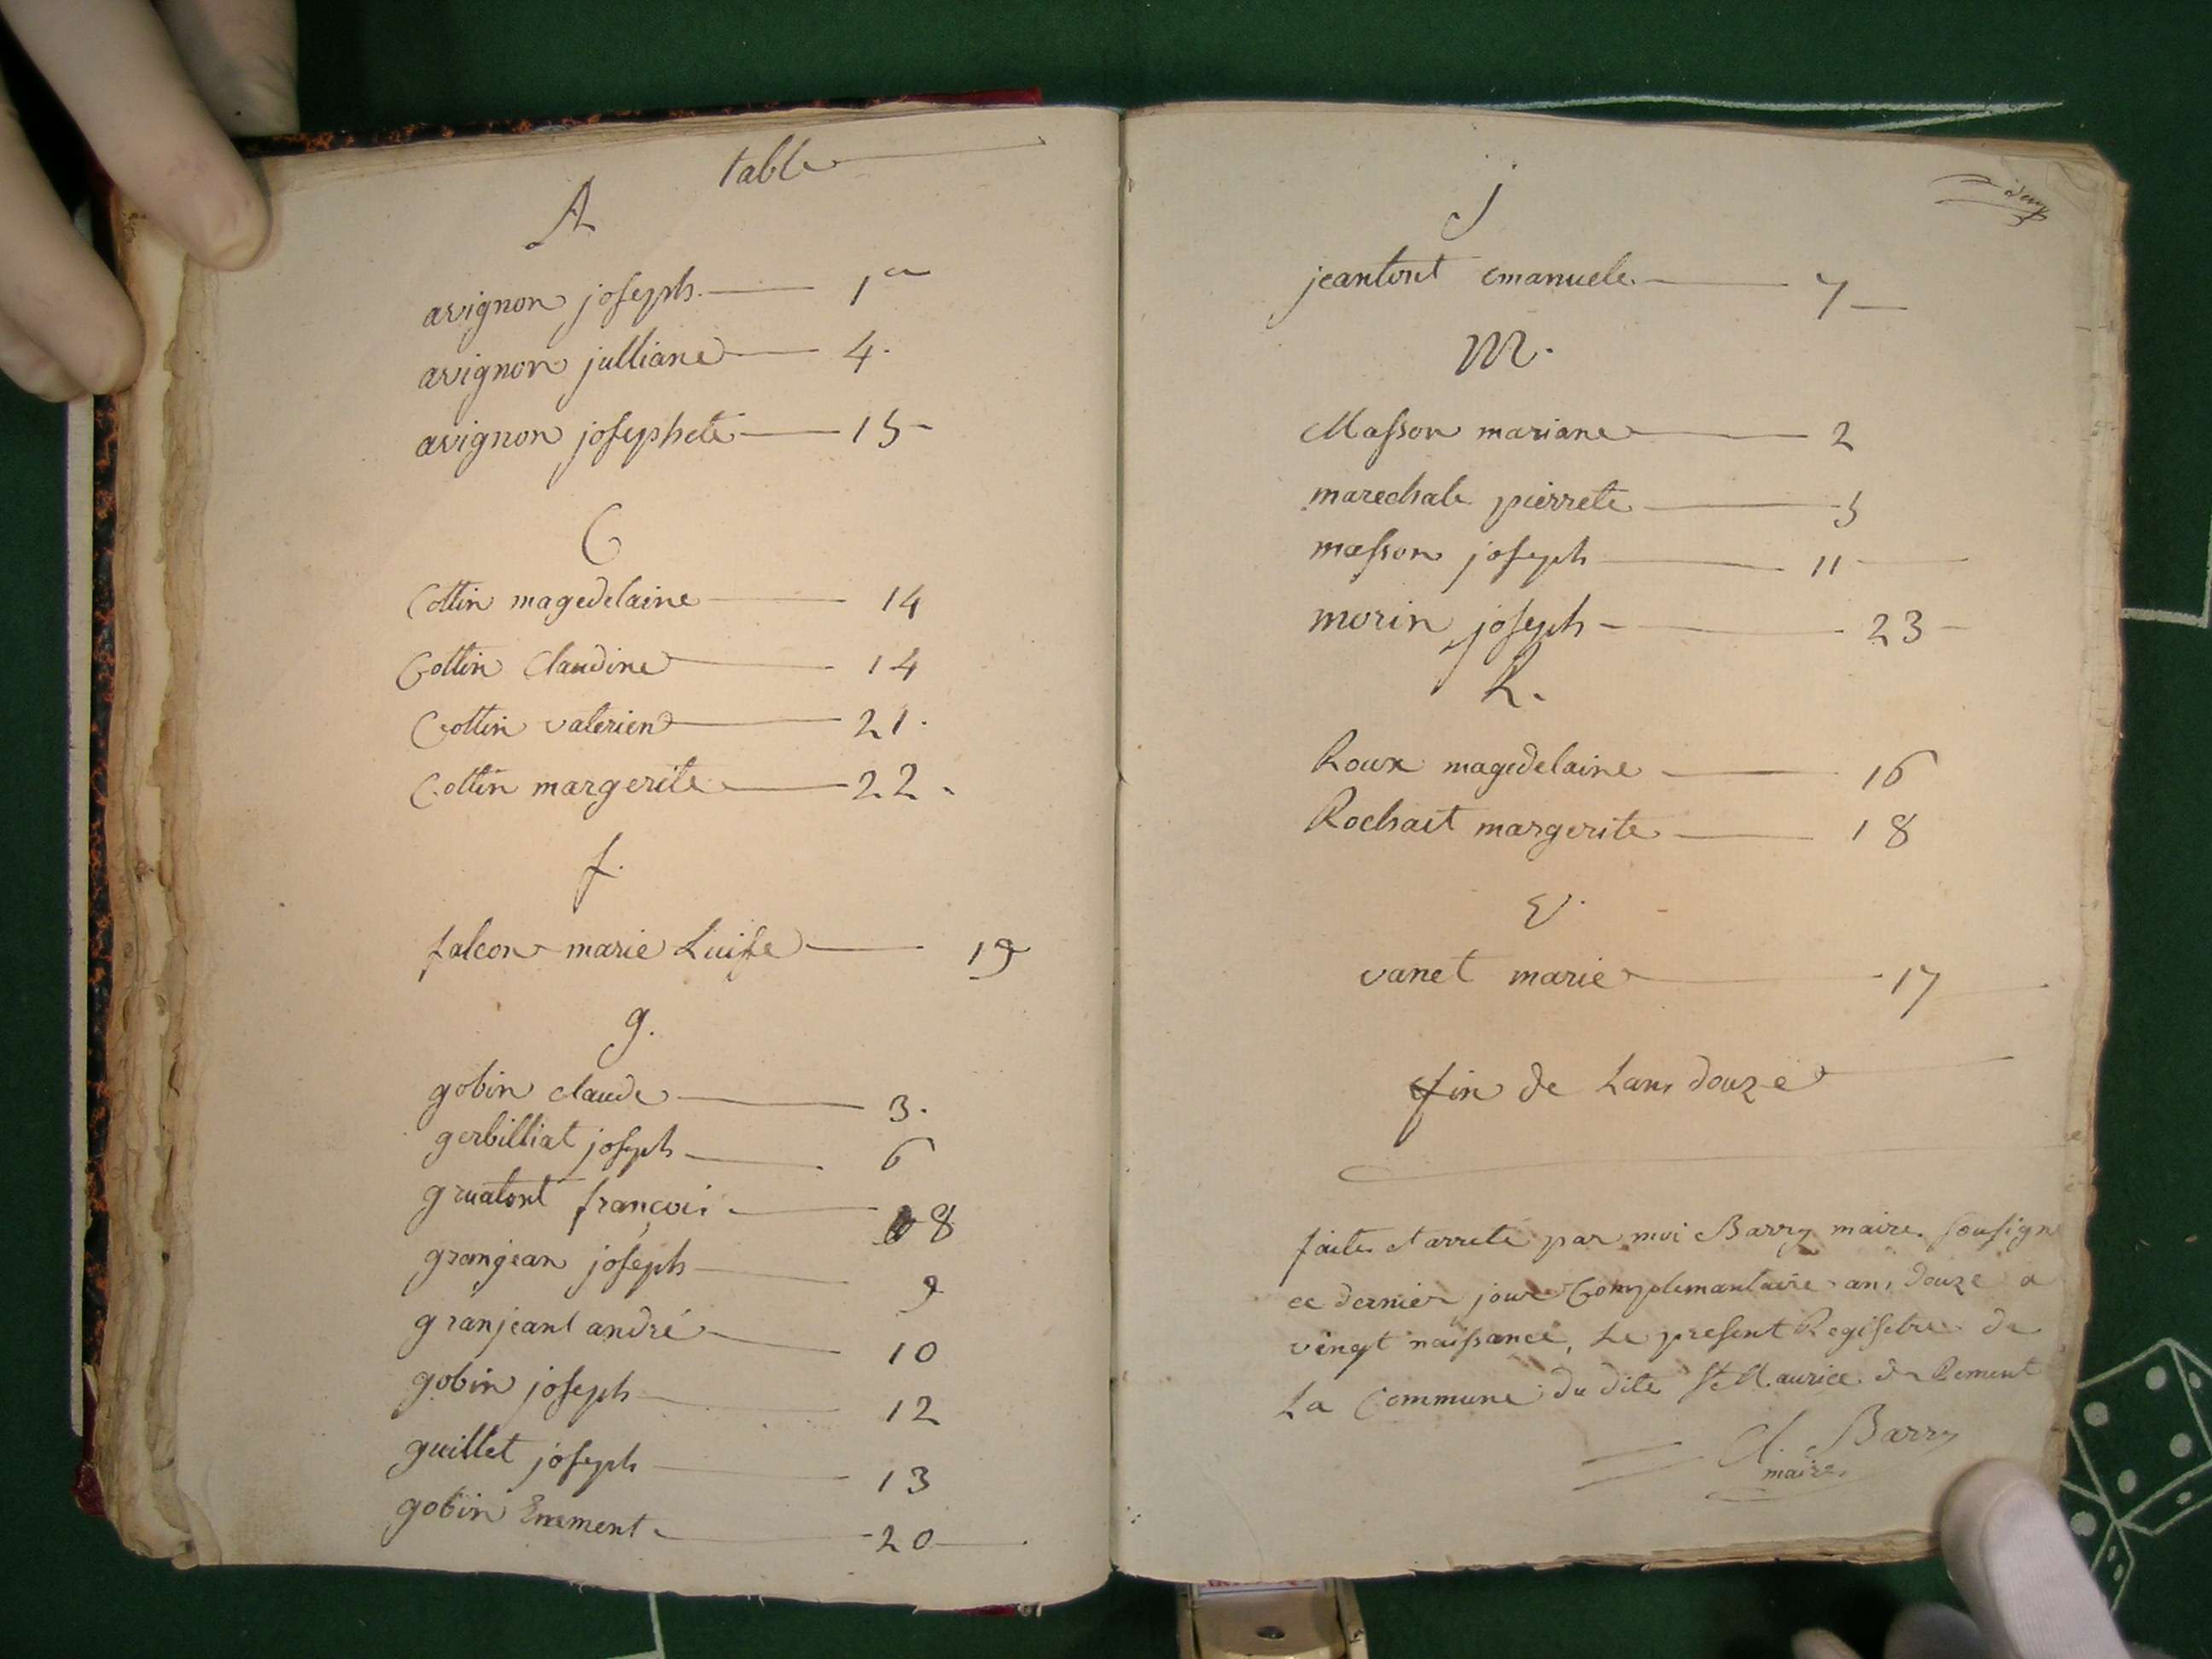 table
A
avignon joseph 1er
avignon julliane 4.
avignon josephete 15
C
Cottin magedelaine 14
Cottin Claudine 14
Cottin valerien 21.
Cottin margerite 22
f.
falcon marie Luise 19
g.
gobin claude 3.
gerbilliat joseph 6
gruatont françois 8
granjean joseph 9
granjeant andré 10
gobin joseph 12
guillet joseph 13
gobin 20
j
jeantont emanuele 7
M.
Masson mariane 2
marechale pierrete 5
masson joseph 11
morin joseph 23
R.
Roux magedelaine 16
Rochait margerite 18
V.
vanet marie 17
fin de Lan douze
faite et arreté par moi Barry maire sousigné
ce dernier jour Complemantaire an douze a
vingt naissance, Le present Regisetre de
La Commune du dite St Maurice de Rement
Cl. Barry
maire